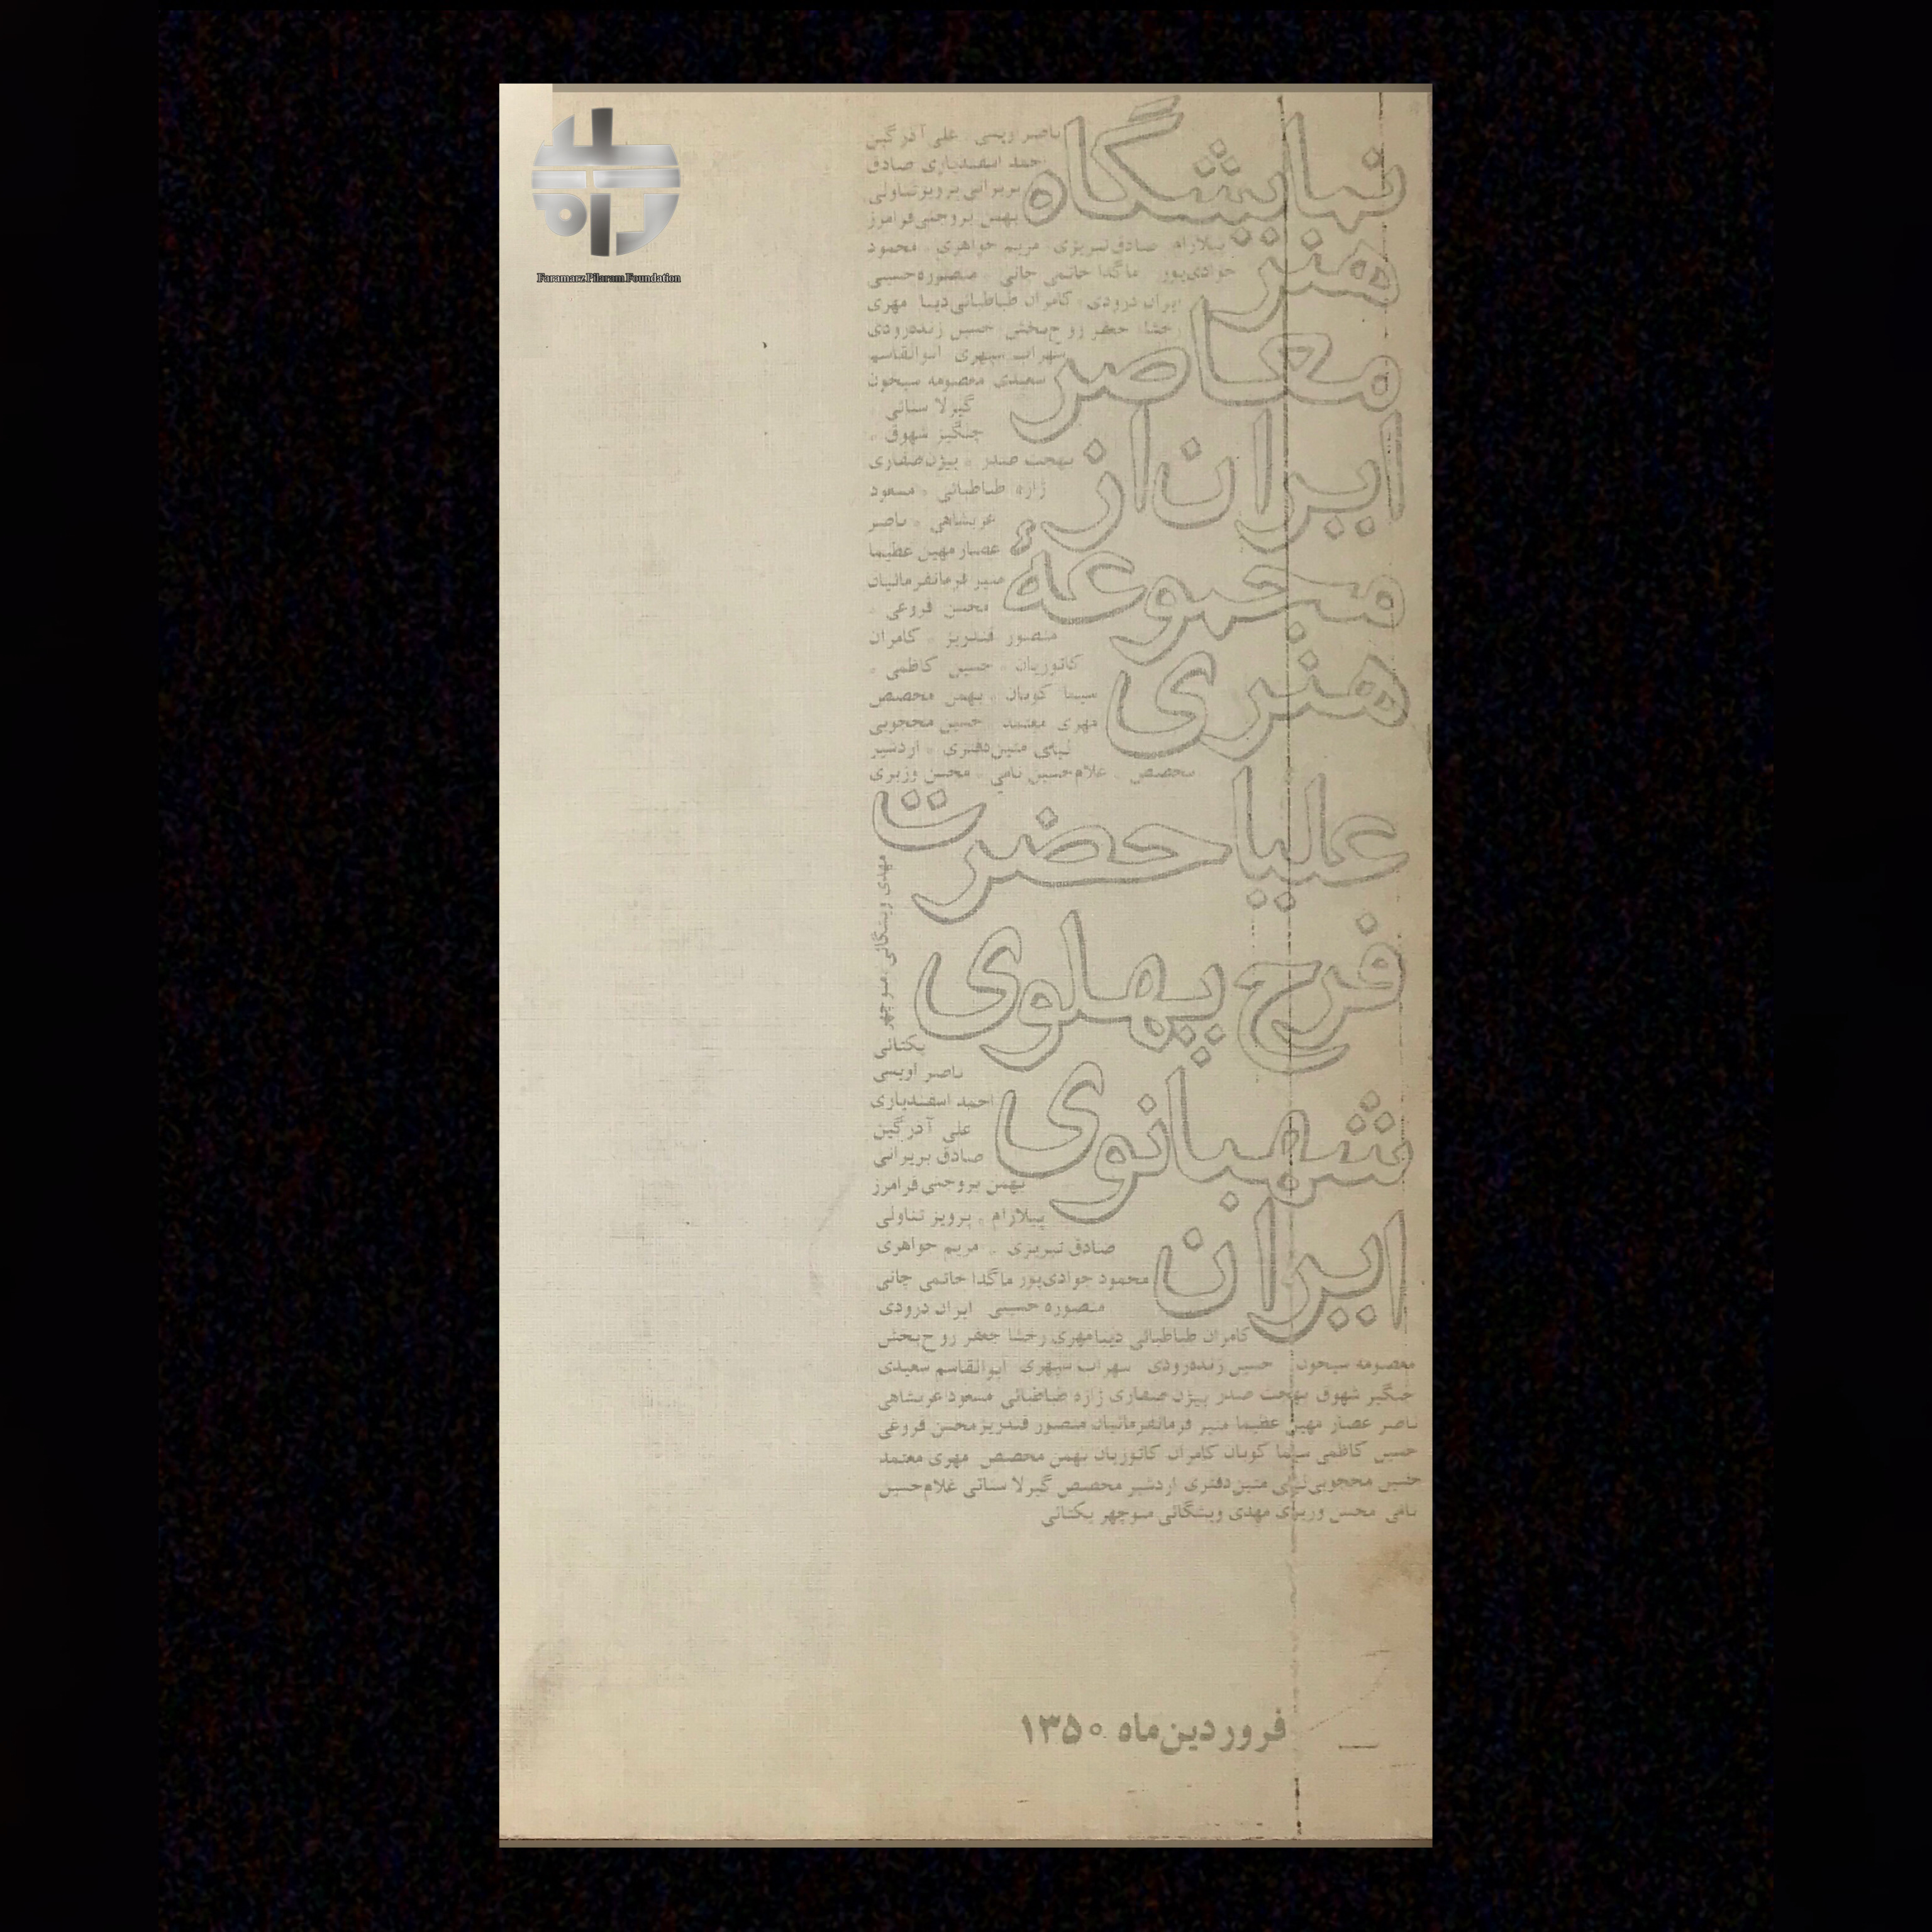 Faramarz Pilaram Foundation
نمایشگاه
هنر
معاصر
ایران از
مجموعهٔ
هنری
علیاحضرت
فرح پهلوی
شهبانوی
ایران
ناصر اویسی علی آذرگین
احمد اسفندیاری صادق
بریرانی پرویز تناولی
بهمن بروجنی فرامرز
پیلارام صادق تبریزی مریم جواهری محمود
جوادی‌پور ماگدا خاتمی جانی منصوره حسینی
ایران درودی کامران طباطبائی دیبا مهری
رخشا جعفر روح‌بخش حسین زنده‌رودی
سهراب سپهری ابوالقاسم
سعیدی معصومه سیحون
گیزلا سنائی
چنگیز شهوق
بهجت صدر بیژن صفاری
ژازه طباطبائی مسعود
عربشاهی ناصر
عصار مهین عظیما
منیر فرمانفرمائیان
محسن فروغی
منصور قندریز کامران
کاتوزیان حسین کاظمی
سیما کوبان بهمن محصص
مهری معتمد حسین محجوبی
لیلی متین‌دفتری اردشیر
محصص غلامحسین نامی محسن وزیری
مهدی ویشگائی منوچهر
یکتائی
ناصر اویسی
احمد اسفندیاری
علی آذرگین
صادق بریرانی
بهمن بروجنی فرامرز
پیلارام پرویز تناولی
صادق تبریزی مریم جواهری
محمود جوادی‌پور ماگدا خاتمی جانی
منصوره حسینی ایران درودی
کامران طباطبائی دیبا مهری رخشا جعفر روح‌بخش
معصومه سیحون حسین زنده‌رودی سهراب سپهری ابوالقاسم سعیدی
چنگیز شهوق بهجت صدر بیژن صفاری ژازه طباطبائی مسعود عربشاهی
ناصر عصار مهین عظیما منیر فرمانفرمائیان منصور قندریز محسن فروغی
حسین کاظمی سیما کوبان کامران کاتوزیان بهمن محصص مهری معتمد
حسین محجوبی لیلی متین‌دفتری اردشیر محصص گیزلا سنائی غلامحسین
نامی محسن وزیری مهدی ویشگائی منوچهر یکتائی
فروردین‌ماه ۱۳۵۰